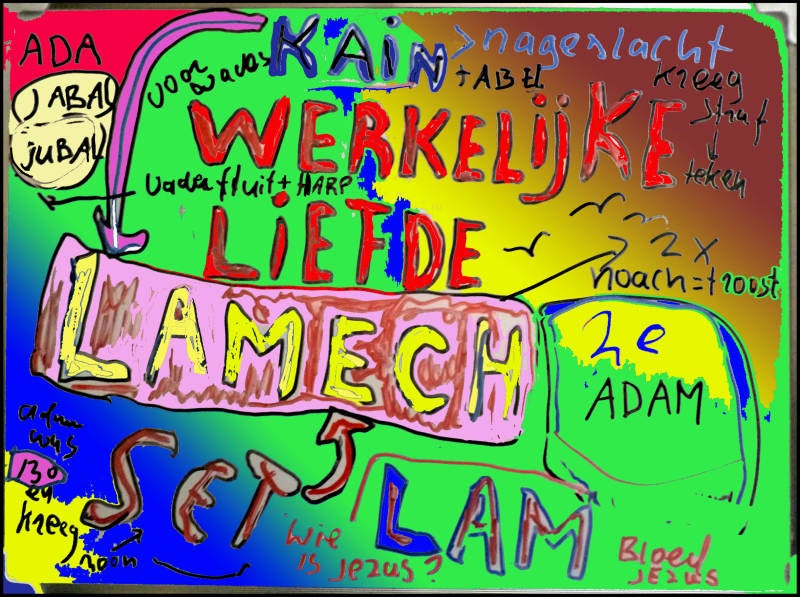 ADA
JABAL
JUBAL
voor vaders
KAIN > nageslacht
+ ABEL
kreeg
straf
teken
WERKELIJKE
LIEFDE
Vader fluit + HARP
2 x
noach = troost
LAMECH
2e
ADAM
adam
was
130
en
kreeg
zoon
SET
LAM
Wie
is JEZUS?
Bloed
JEZUS